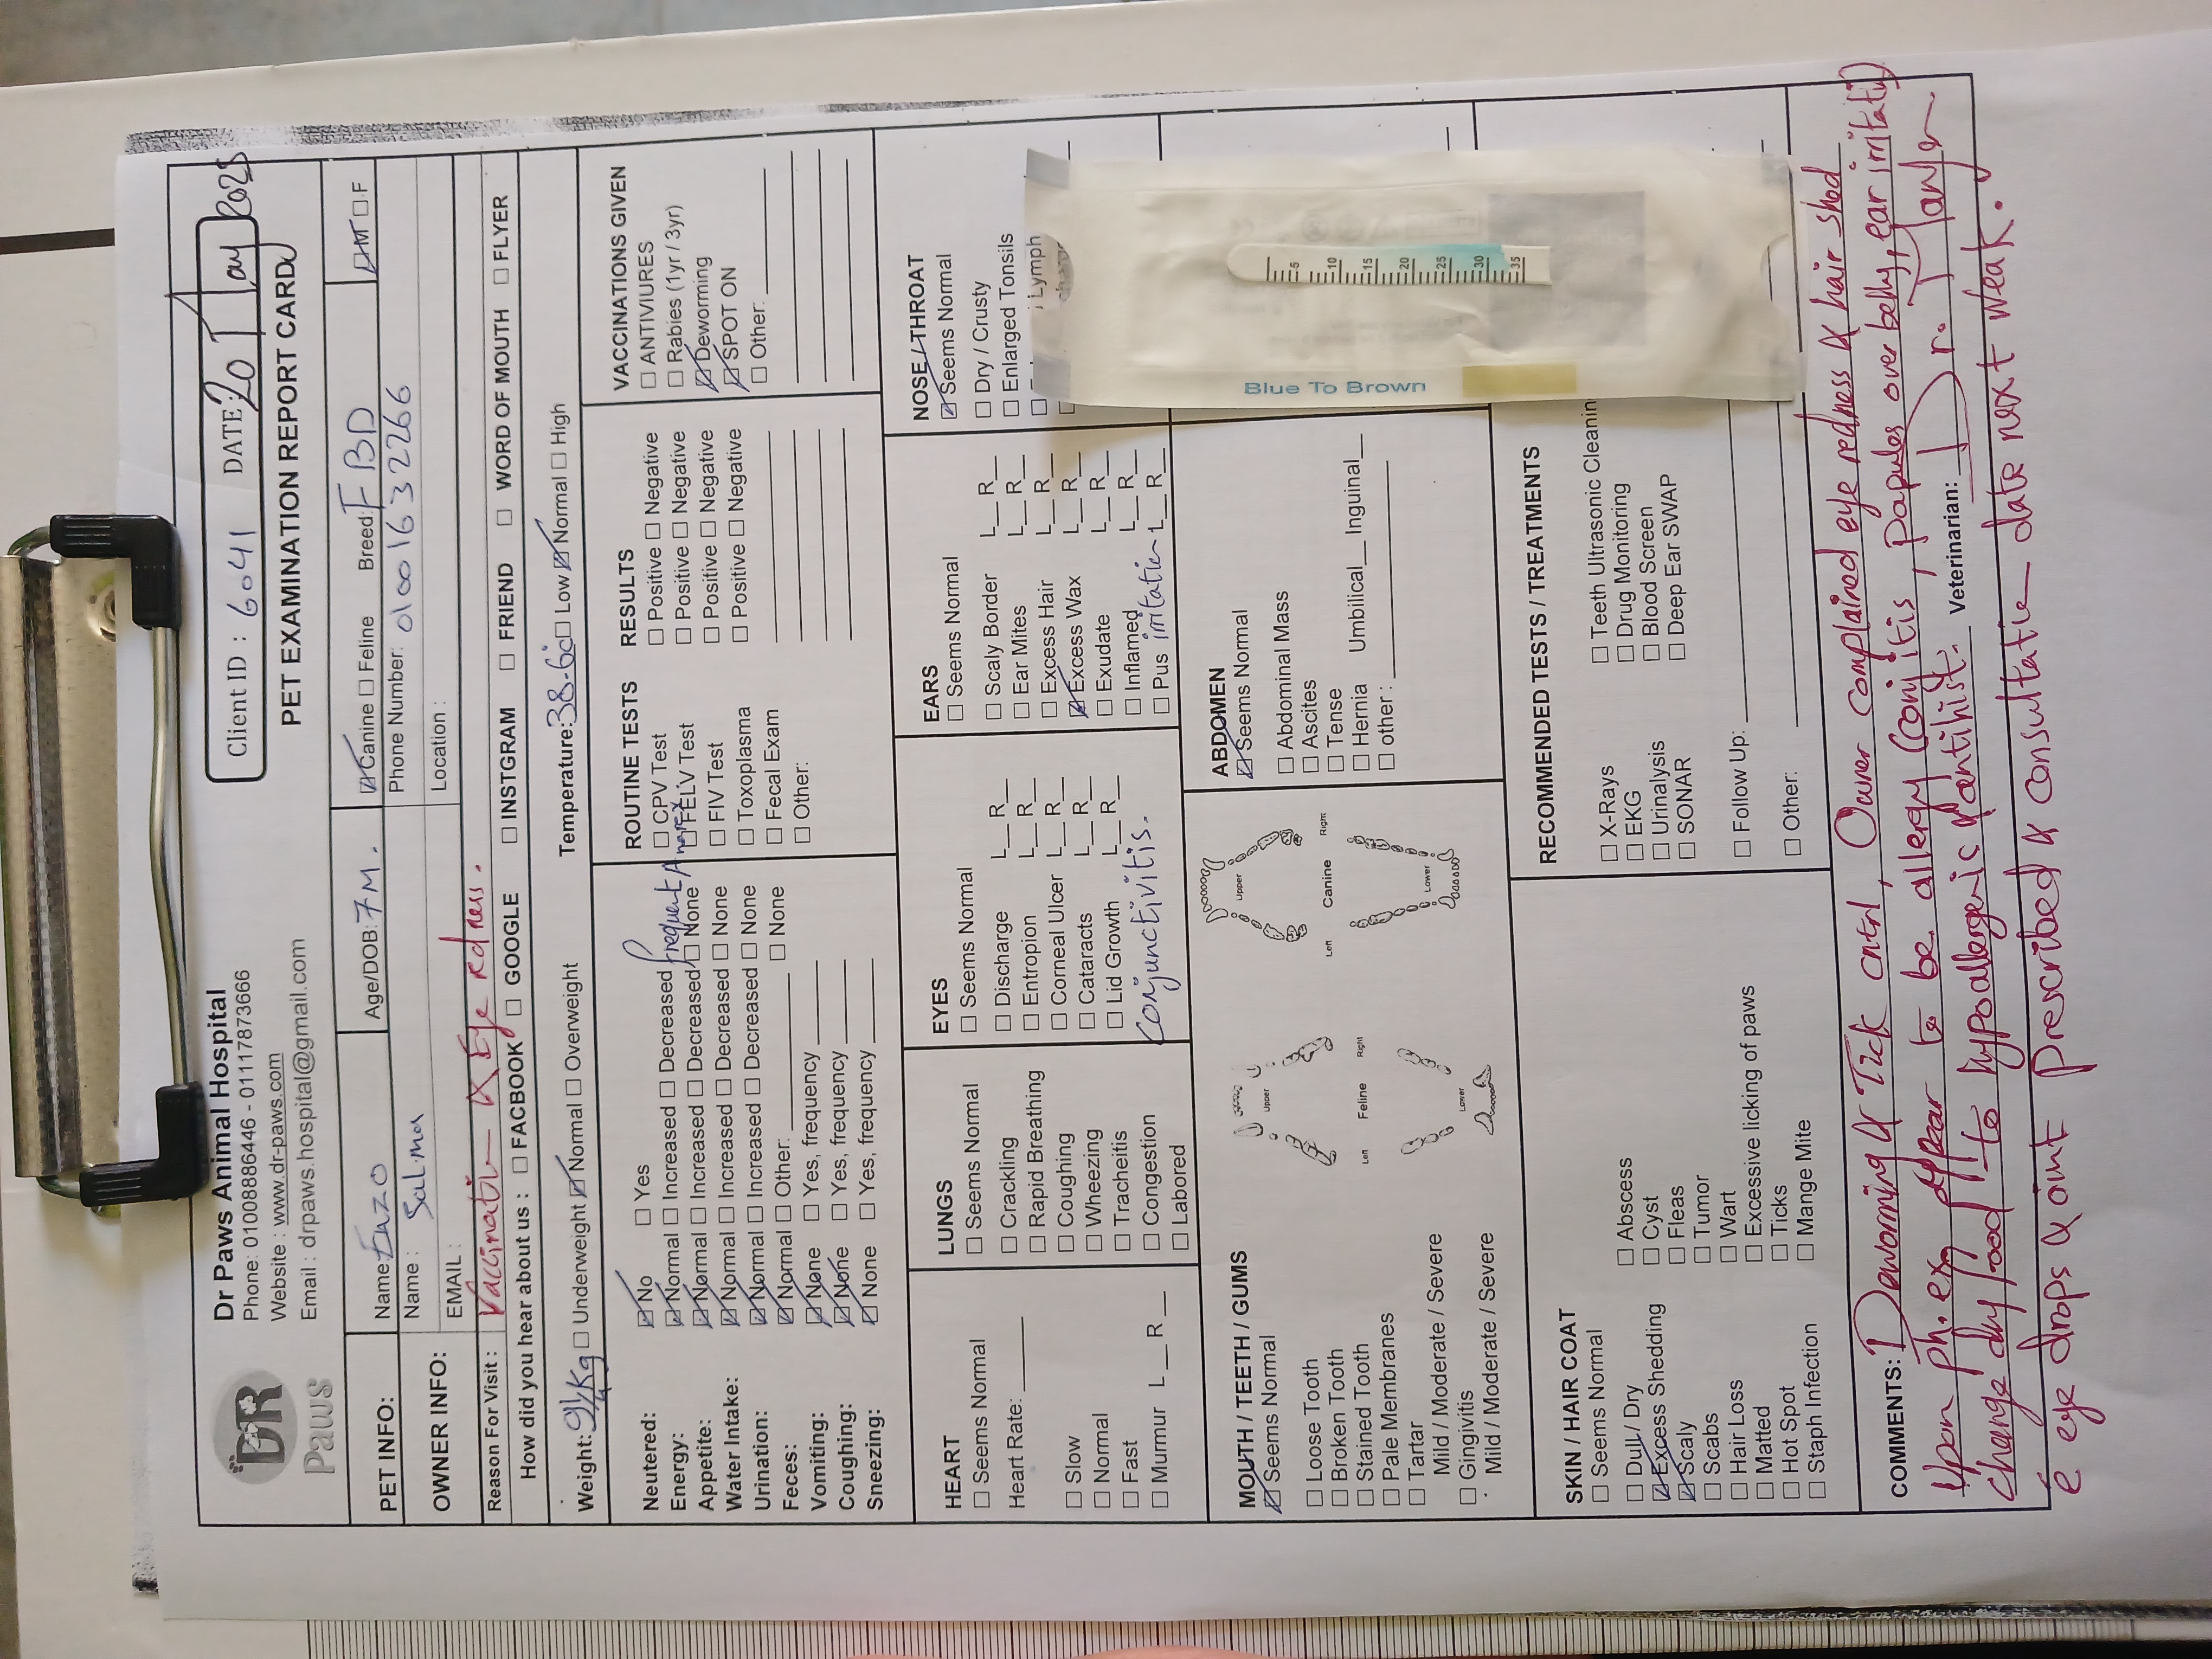 Client ID : 6041 DATE: 20 May 2025
DR
Paws
Dr Paws Animal Hospital
Phone: 01008886446 - 01117873666
Website : www.dr-paws.com
Email : drpaws.hospital@gmail.com
PET EXAMINATION REPORT CARD
PET INFO: Name: Enzo Age/DOB: 7M. ☑ Canine □ Feline Breed: FBD ☑ M □ F
OWNER INFO: Name : Salma Phone Number: 01001632266
EMAIL : Location :
Reason For Visit : Vaccination & Eye redness.
How did you hear about us : □ FACBOOK □ GOOGLE □ INSTGRAM □ FRIEND □ WORD OF MOUTH □ FLYER
Weight: Kg □ Underweight ☑ Normal □ Overweight Temperature: 38.6c° □ Low ☑ Normal □ High
Neutered: ☑ No □ Yes
Energy: ☑ Normal □ Increased □ Decreased
Appetite: ☑ Normal □ Increased □ Decreased □ None frequent
Water Intake: ☑ Normal □ Increased □ Decreased □ None
Urination: ☑ Normal □ Increased □ Decreased □ None
Feces: ☑ Normal □ Other: □ None
Vomiting: ☑ None □ Yes, frequency
Coughing: ☑ None □ Yes, frequency
Sneezing: ☑ None □ Yes, frequency
ROUTINE TESTS
□ CPV Test
□ FELV Test
□ FIV Test
□ Toxoplasma
□ Fecal Exam
□ Other:
RESULTS
□ Positive □ Negative
□ Positive □ Negative
□ Positive □ Negative
□ Positive □ Negative
VACCINATIONS GIVEN
□ ANTIVIURES
□ Rabies (1yr / 3yr)
☑ Deworming
☑ SPOT ON
□ Other:
HEART
□ Seems Normal
Heart Rate:
□ Slow
□ Normal
□ Fast
□ Murmur L__ R__
LUNGS
□ Seems Normal
□ Crackling
□ Rapid Breathing
□ Coughing
□ Wheezing
□ Tracheitis
□ Congestion
□ Labored
EYES
□ Seems Normal
□ Discharge L__ R__
□ Entropion L__ R__
□ Corneal Ulcer L__ R__
□ Cataracts L__ R__
□ Lid Growth L__ R__
Conjunctivitis.
EARS
□ Seems Normal
□ Scaly Border L__ R__
□ Ear Mites L__ R__
□ Excess Hair L__ R__
☑ Excess Wax L__ R__
□ Exudate L__ R__
□ Inflamed L__ R__
□ Pus irritation L__ R__
NOSE / THROAT
☑ Seems Normal
□ Dry / Crusty
□ Enlarged Tonsils
□ Lymph
MOUTH / TEETH / GUMS
☑ Seems Normal
□ Loose Tooth
□ Broken Tooth
□ Stained Tooth
□ Pale Membranes
□ Tartar
Mild / Moderate / Severe
□ Gingivitis
Mild / Moderate / Severe
Upper
Left Feline Right
Lower
Upper
Left Canine Right
Lower
ABDOMEN
☑ Seems Normal
□ Abdominal Mass
□ Ascites
□ Tense
□ Hernia Umbilical__ Inguinal__
□ other :
5 10 15 20 25 30 35
Blue To Brown
SKIN / HAIR COAT
□ Seems Normal
□ Dull / Dry
☑ Excess Shedding
☑ Scaly
□ Scabs
□ Hair Loss
□ Matted
□ Hot Spot
□ Staph Infection
□ Abscess
□ Cyst
□ Fleas
□ Tumor
□ Wart
□ Excessive licking of paws
□ Ticks
□ Mange Mite
RECOMMENDED TESTS / TREATMENTS
□ X-Rays
□ EKG
□ Urinalysis
□ SONAR
□ Teeth Ultrasonic Cleanin
□ Drug Monitoring
□ Blood Screen
□ Deep Ear SWAP
□ Follow Up:
□ Other:
COMMENTS: Deworming & Tick cntrl, Owner complained eye redness & hair shed
Upon Ph. ex appear to be allergy (conj itis, Papules over belly, ear irritation)
Change dry food to hypoallergenic & antihist. Veterinarian: Dr.
è eye drops & oint prescribed & consultation date next weak.